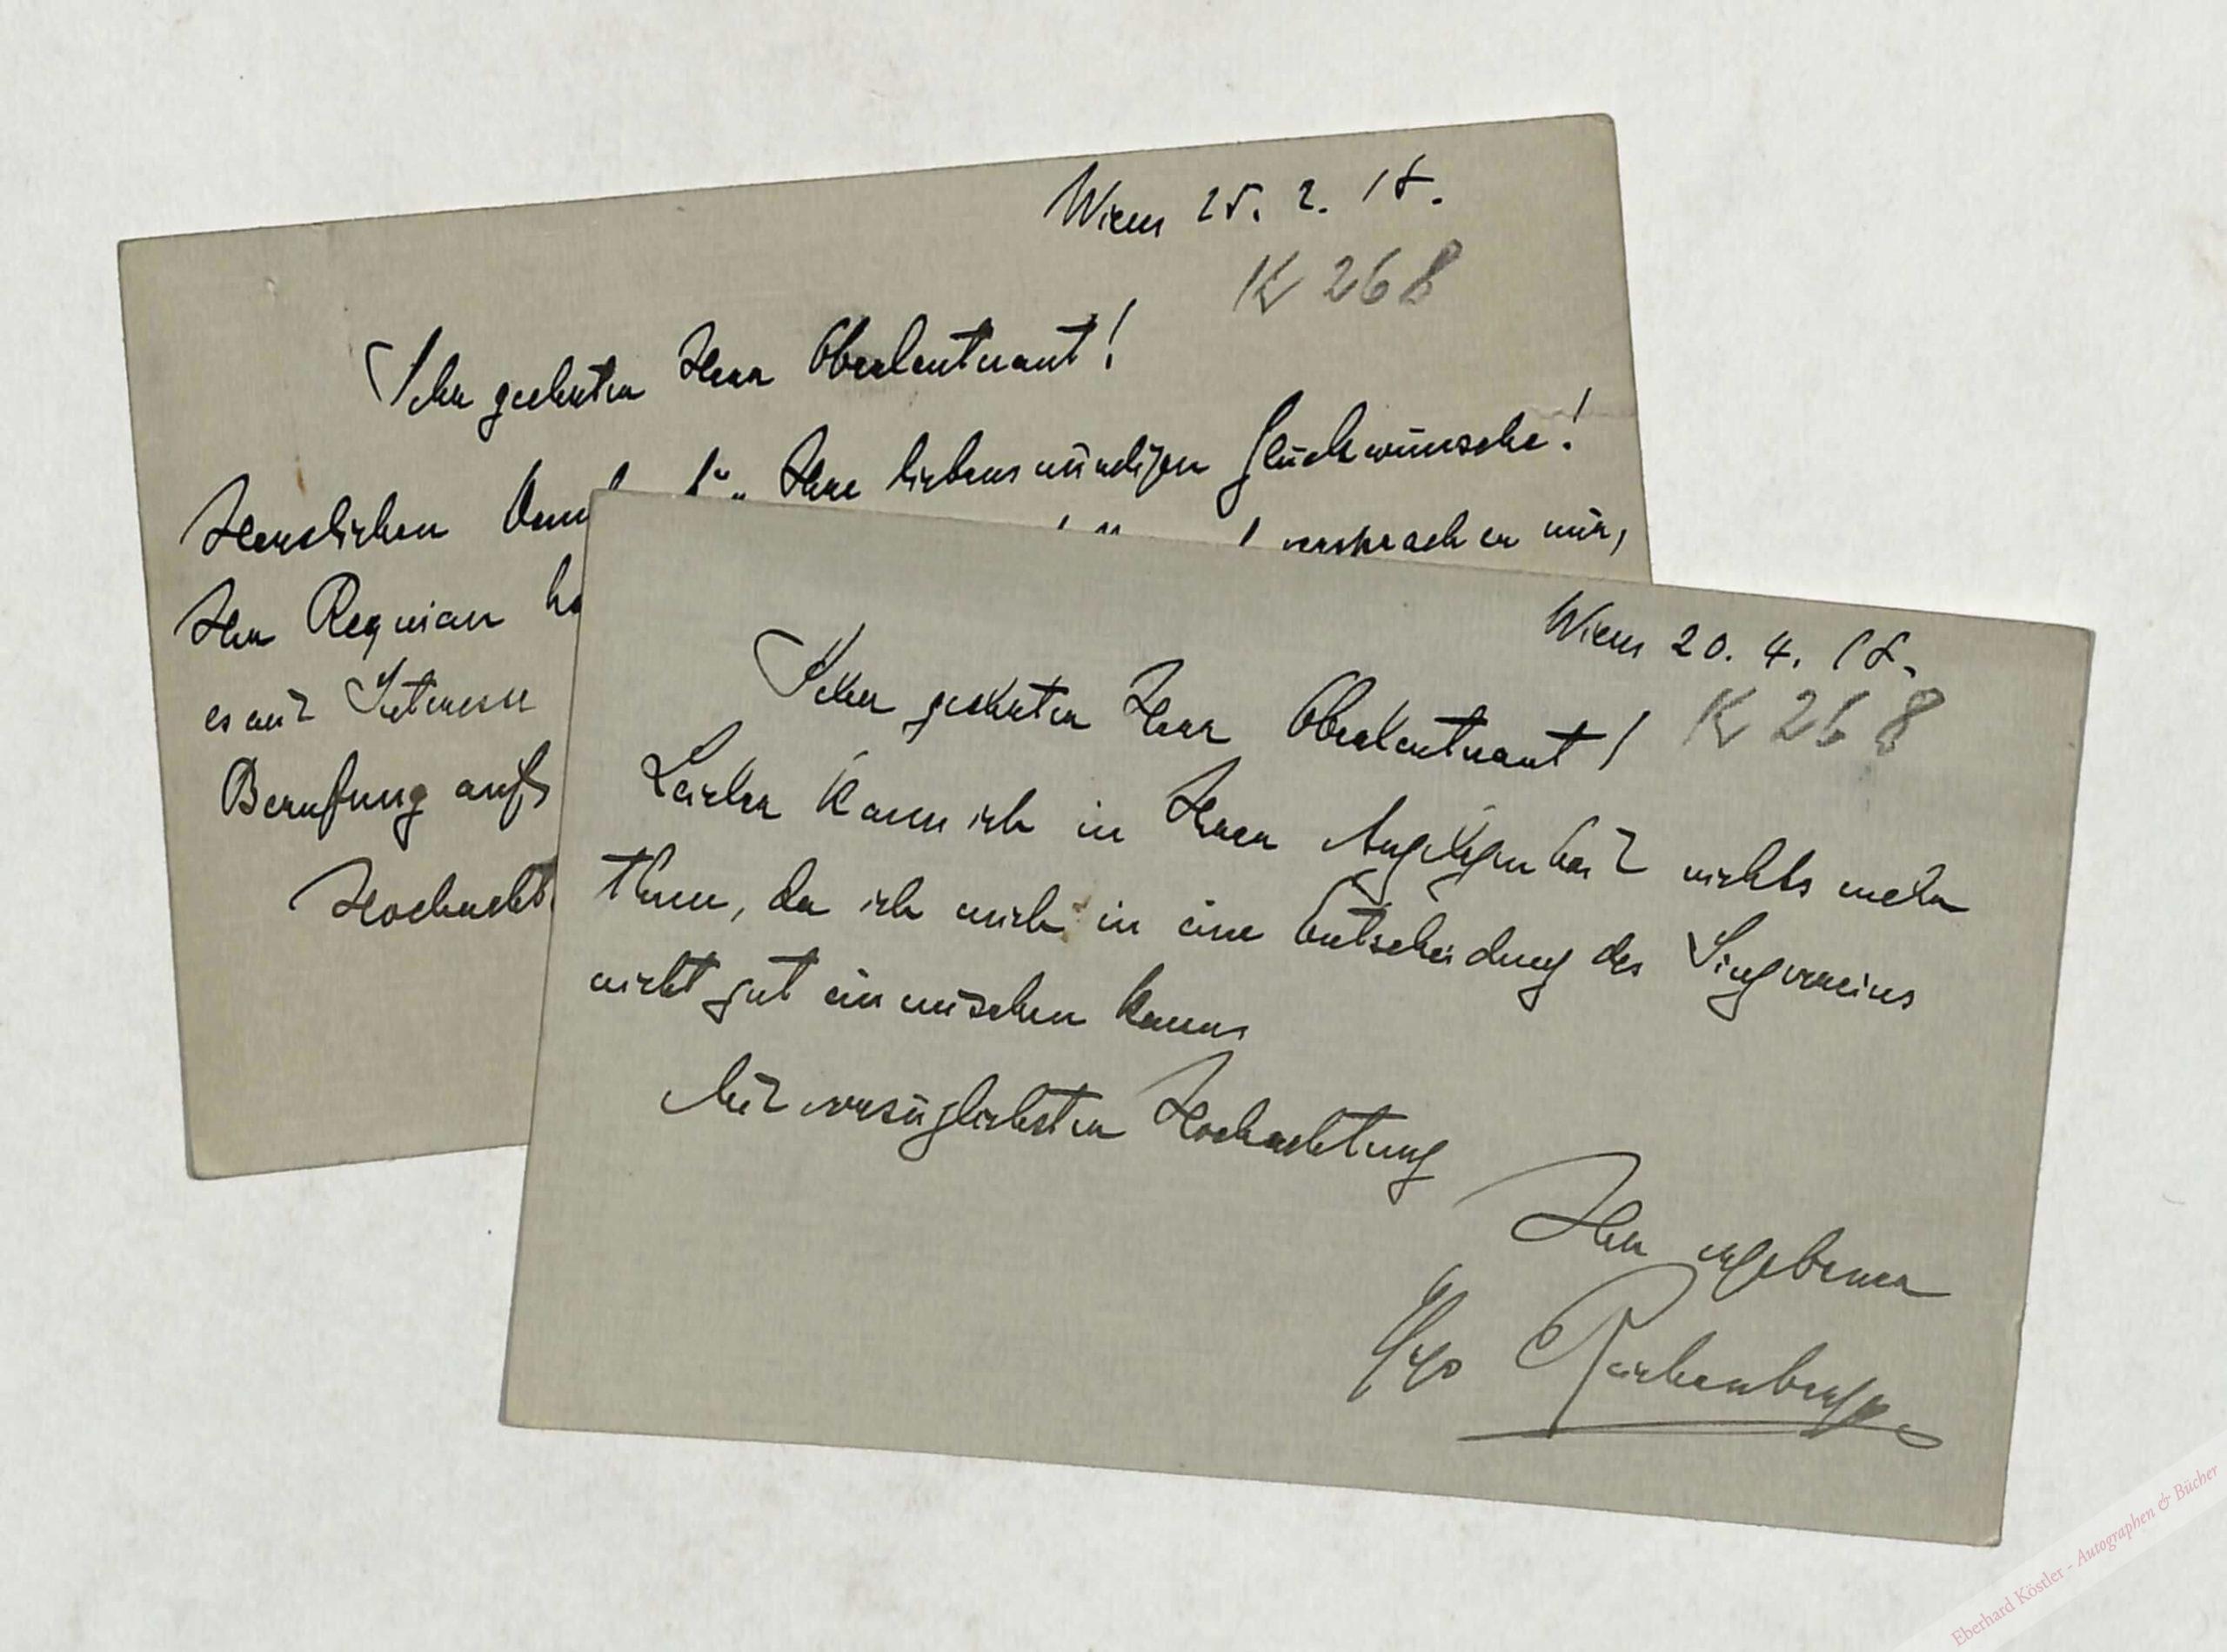 Wien 25. 2. 18.
K 268
Sehr geehrter Herr Oberleutnant!
Herzlichen Ihre liebenswürdigen Glückwünsche!
versprach er mir,
Ihr Requiem
es mit Interesse
Berufung aufs
Hochacht
Wien 20. 4. 18.
K 268
Sehr geehrter Herr Oberleutnant!
Leider kann ich in Ihrer Angelegenheit nichts mehr
thun, da ich mich in eine Entscheidung des Singvereins
nicht gut einmischen kann
Mit vorzüglichster Hochachtung
Ihr ergebener
Hugo Reichenberger
Eberhard Köstler - Autographen & Bücher